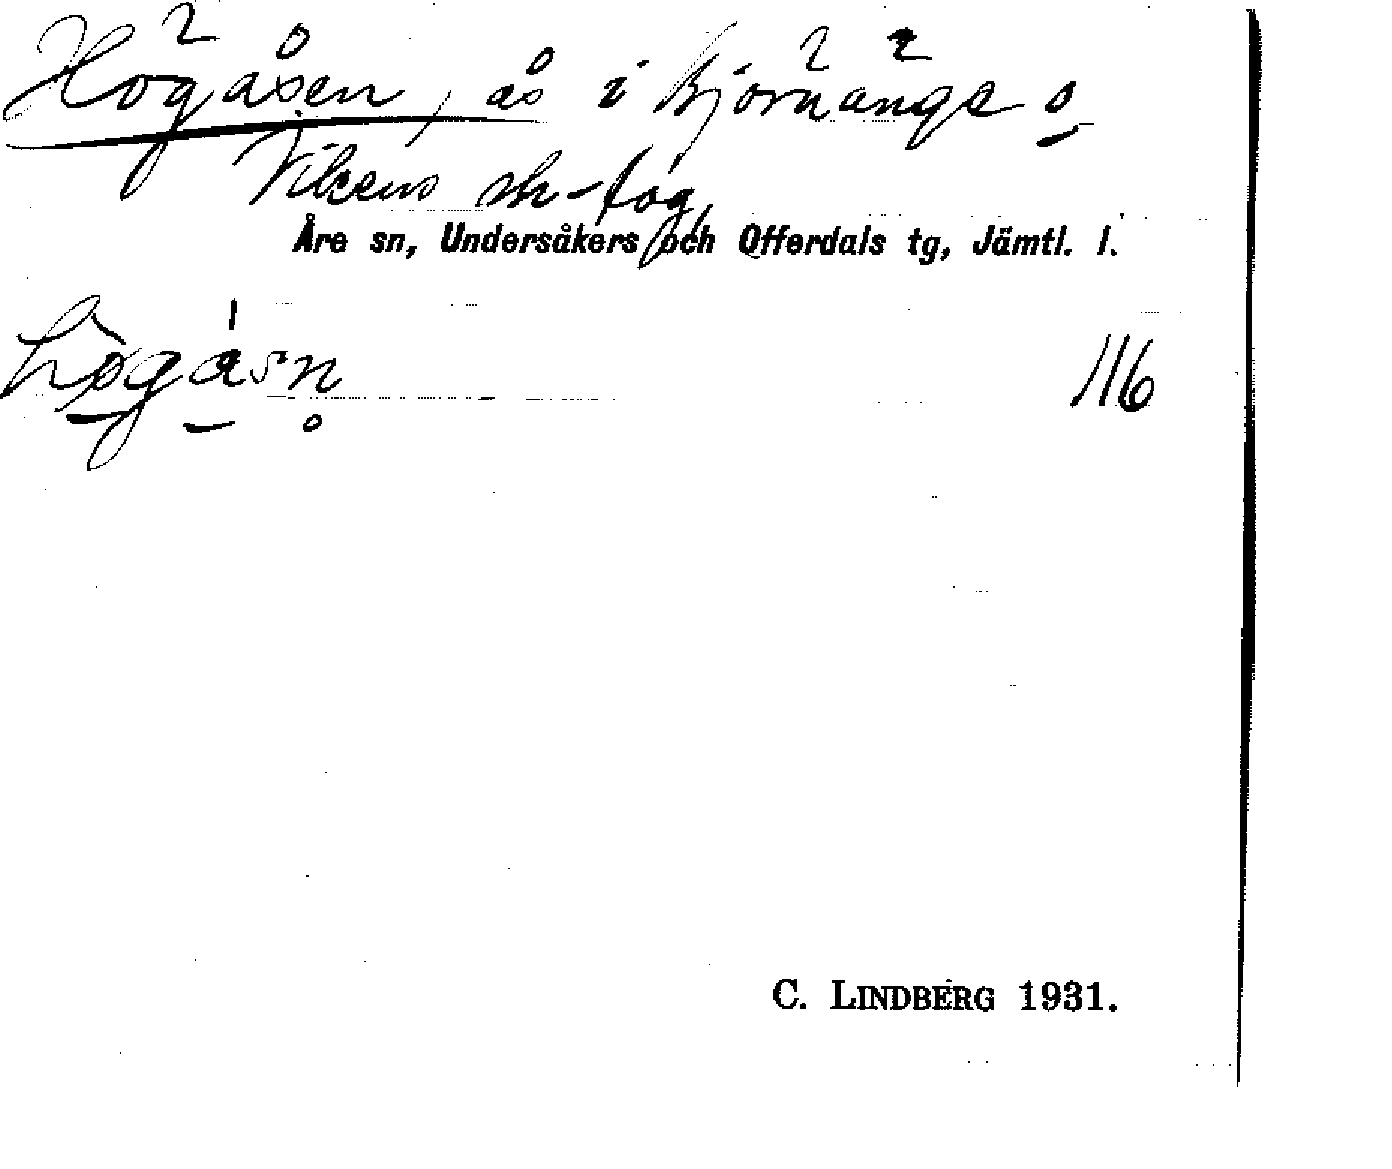 Högåsen, ås i Björnänge o.
Vikens sk-fög,
Åre sn, Undersåkers och Offerdals tg, Jämtl. l.
116
C. LINDBERG 1931.